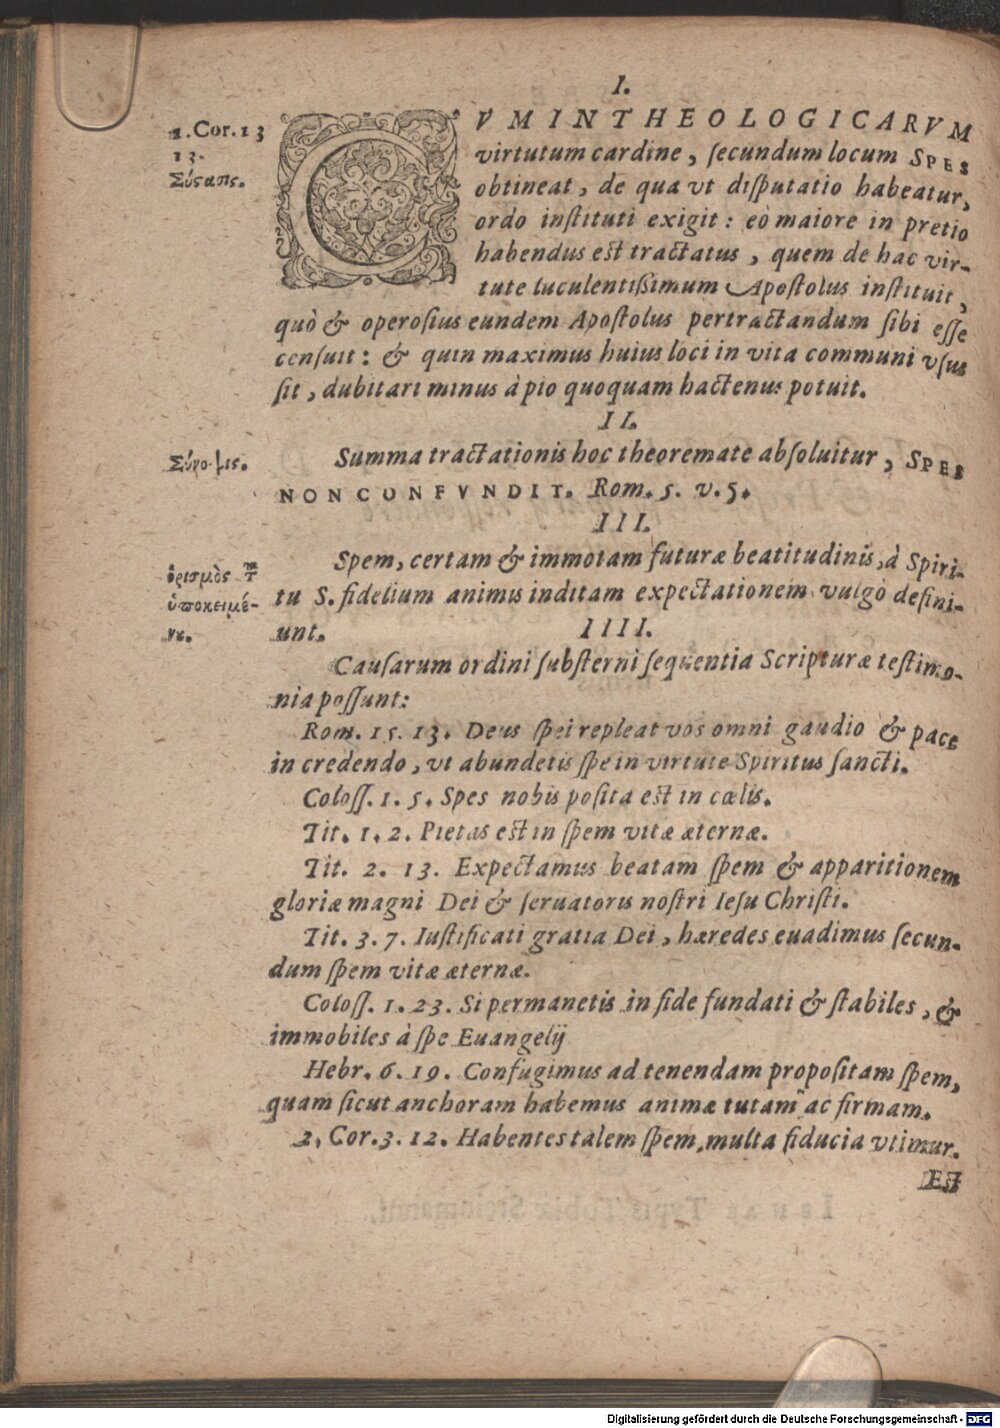 I.
1. Cor. 13
13.
Σύςασις.
CVM IN THEOLOGICARVM
virtutum cardine, ſecundum locum SPES
obtineat, de qua vt diſputatio habeatur,
ordo inſtituti exigit: eò maiore in pretio
habendus eſt tractatus, quem de hac vir-
tute luculentiſſimum Apoſtolus inſtituit,
quò & operoſius eundem Apoſtolus pertractandum ſibi eſſe
cenſuit: & quin maximus huius loci in vita communi vſus
ſit, dubitari minus à pio quoquam hactenus potuit.
II.
Σύνοψις.
Summa tractationis hoc theoremate abſoluitur, SPES
NON CONFVNDIT. Rom. 5. v. 5.
III.
ὁρισμὸς τ͂
ὑποκειμέ-
νȣ.
Spem, certam & immotam futuræ beatitudinis, à Spiri-
tu S. fidelium animis inditam expectationem vulgò defini-
unt.
IIII.
Cauſarum ordini ſubſterni ſequentia Scripturæ teſtimo-
nia poſſunt:
Rom. 15. 13. Deus ſpei repleat vos omni gaudio & pace
in credendo, vt abundetis ſpe in virtute Spiritus ſancti.
Coloſſ. 1. 5. Spes nobis poſita eſt in cœlis.
Tit. 1. 2. Pietas eſt in ſpem vitæ æternæ.
Tit. 2. 13. Expectamus beatam ſpem & apparitionem
gloriæ magni Dei & ſeruatoris noſtri Ieſu Chriſti.
Tit. 3. 7. Iuſtificati gratia Dei, hæredes euadimus ſecun-
dum ſpem vitæ æternæ.
Coloſſ. 1. 23. Si permanetis in fide fundati & ſtabiles, &
immobiles à ſpe Euangelij
Hebr. 6. 19. Confugimus ad tenendam propoſitam ſpem,
quam ſicut anchoram habemus animæ tutam ac firmam.
2. Cor. 3. 12. Habentes talem ſpem, multa fiducia vtimur.
Eſt
Digitalisierung gefördert durch die Deutsche Forschungsgemeinschaft - DFG